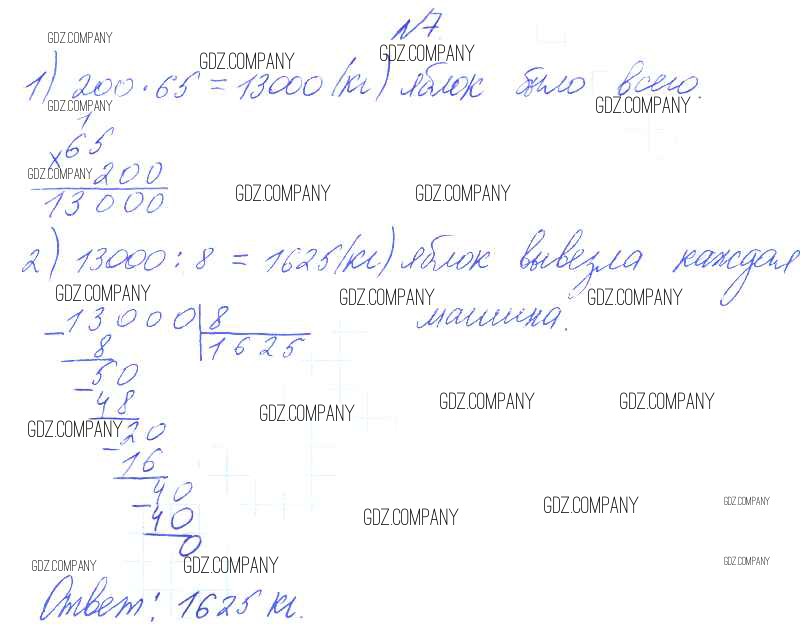 №7.
GDZ.COMPANY
GDZ.COMPANY GDZ.COMPANY
1) 200 · 65 = 13000 (кг) яблок было всего.
GDZ.COMPANY GDZ.COMPANY
1
× 65
GDZ.COMPANY 200
13000
GDZ.COMPANY GDZ.COMPANY
2) 13000 : 8 = 1625 (кг) яблок вывезла каждая
GDZ.COMPANY GDZ.COMPANY GDZ.COMPANY
машина.
- 13000 | 8
8 | 1625
- 50
48
GDZ.COMPANY GDZ.COMPANY GDZ.COMPANY GDZ.COMPANY
- 20
16
- 40
40
0
GDZ.COMPANY GDZ.COMPANY GDZ.COMPANY
GDZ.COMPANY GDZ.COMPANY GDZ.COMPANY
Ответ: 1625 кг.